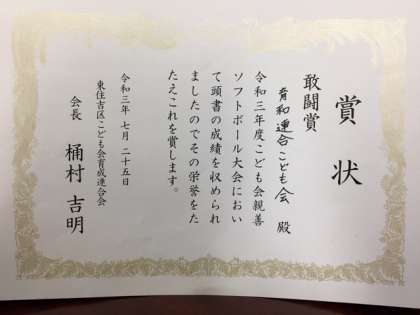 賞状
敢闘賞
育和連合こども会 殿
令和三年度こども会親善
ソフトボール大会におい
て頭書の成績を収められ
ましたのでその栄誉をた
たえこれを賞します。
令和三年 七月 二十五日
東住吉区こども会育成連合会
会長 桶村 吉明